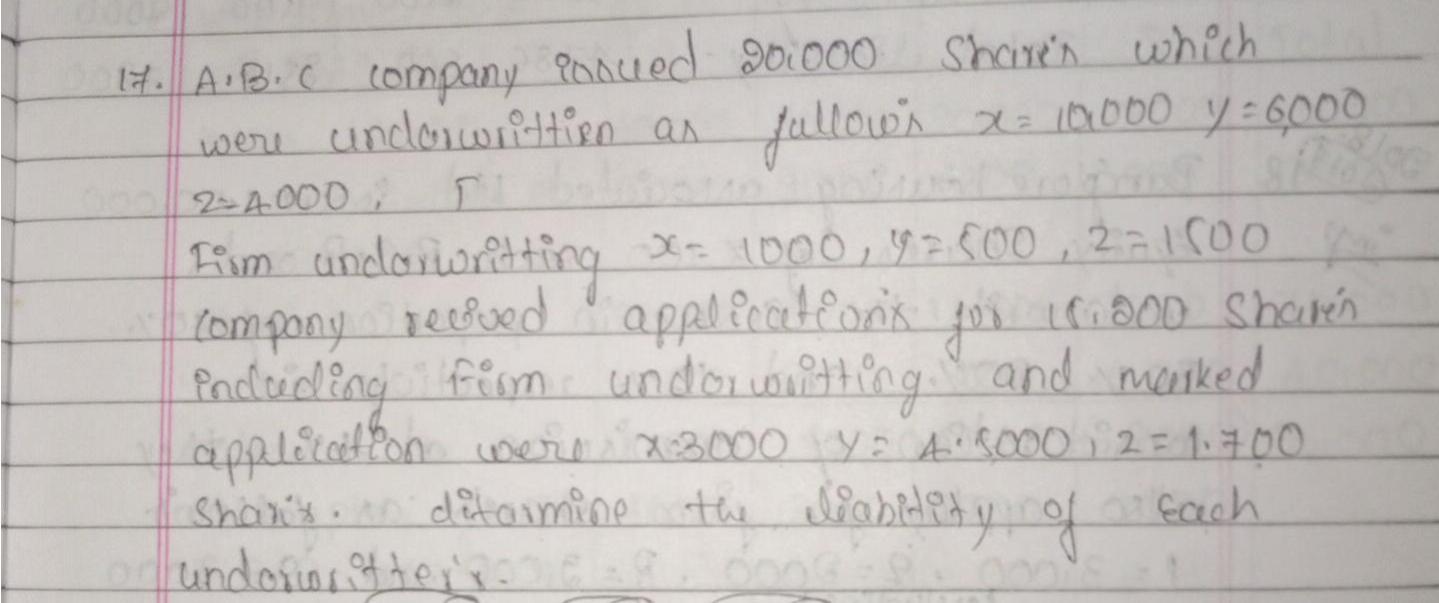 17. A.B.C company issued 20.000 Shares which
were underwritten as follows x=10,000 y=6,000
z=4000.
Firm underwritting x= 1000, y=500, z=1500
company recived applications for 15.200 Shares
including firm underwritting and marked
application were x=3000 y= 4.5000, z=1.700
Shares. ditarmine the liability of Each
underwritters.